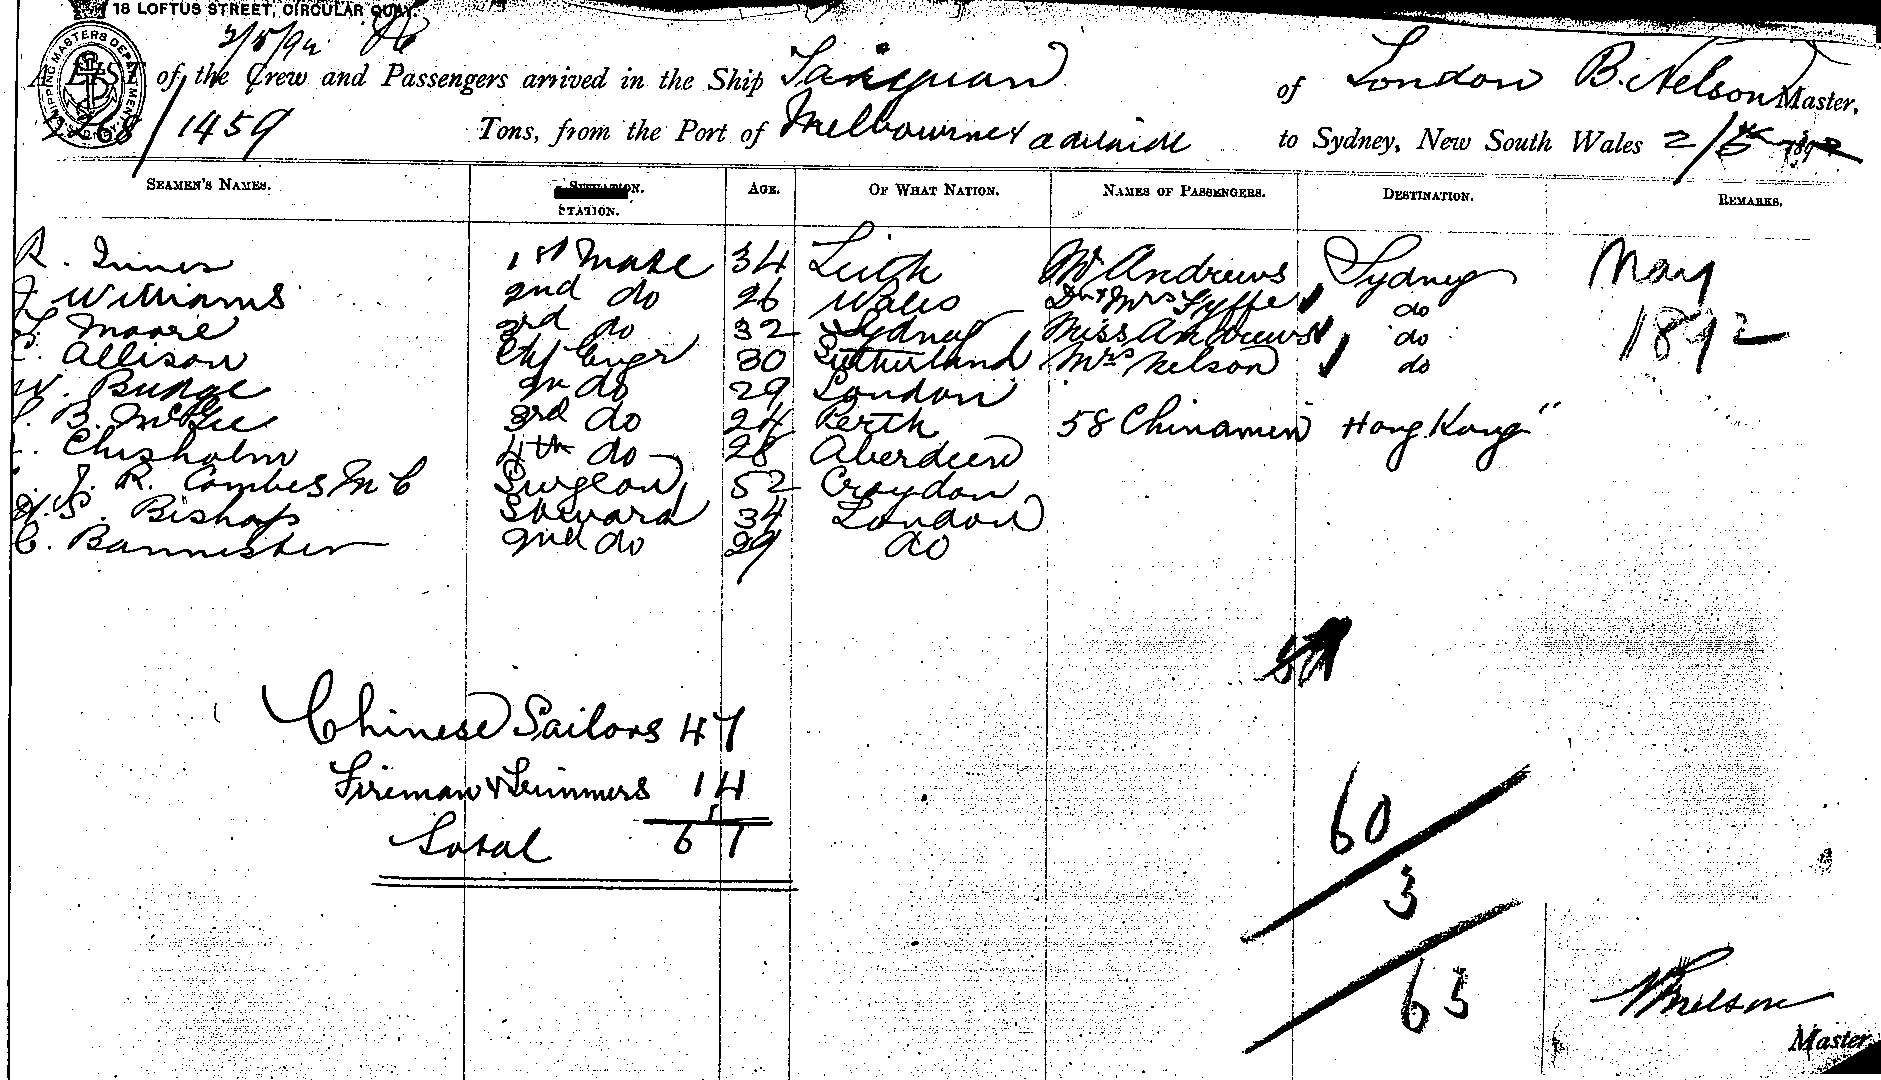 18 LOFTUS STREET, CIRCULAR QUAY.
2/5/92
A LIST of the Crew and Passengers arrived in the Ship Taiyuan of London B. Nelson Master,
2268/1459 Tons, from the Port of Melbourne & Adelaide to Sydney, New South Wales 2/5 1892
SEAMEN'S NAMES. STATION. AGE. OF WHAT NATION. NAMES OF PASSENGERS. DESTINATION. REMARKS.
R. Innes 1st Mate 34 Leith Mr Andrews Sydney May
J Williams 2nd do 26 Wales Dr & Mrs Fyffe do 1892
Moore 3rd do 32 Sydney Miss Andrews do
C. Allison Chf Engr 30 Sutherland Mrs Nelson do
W. Budge 2n do 29 London
B. McGee 3rd do 24 Perth 58 Chinamen Hong Kong "
Chisholm 4th do 28 Aberdeen
J. R. Combes M C Surgeon 52 Croydon
H. S. Bishop Steward 34 London
C. Bannister 2nd do 29 do
Chinese Sailors 47
Fireman & Trimmers 14
Total 61
60
3
63
B Nelson
Master